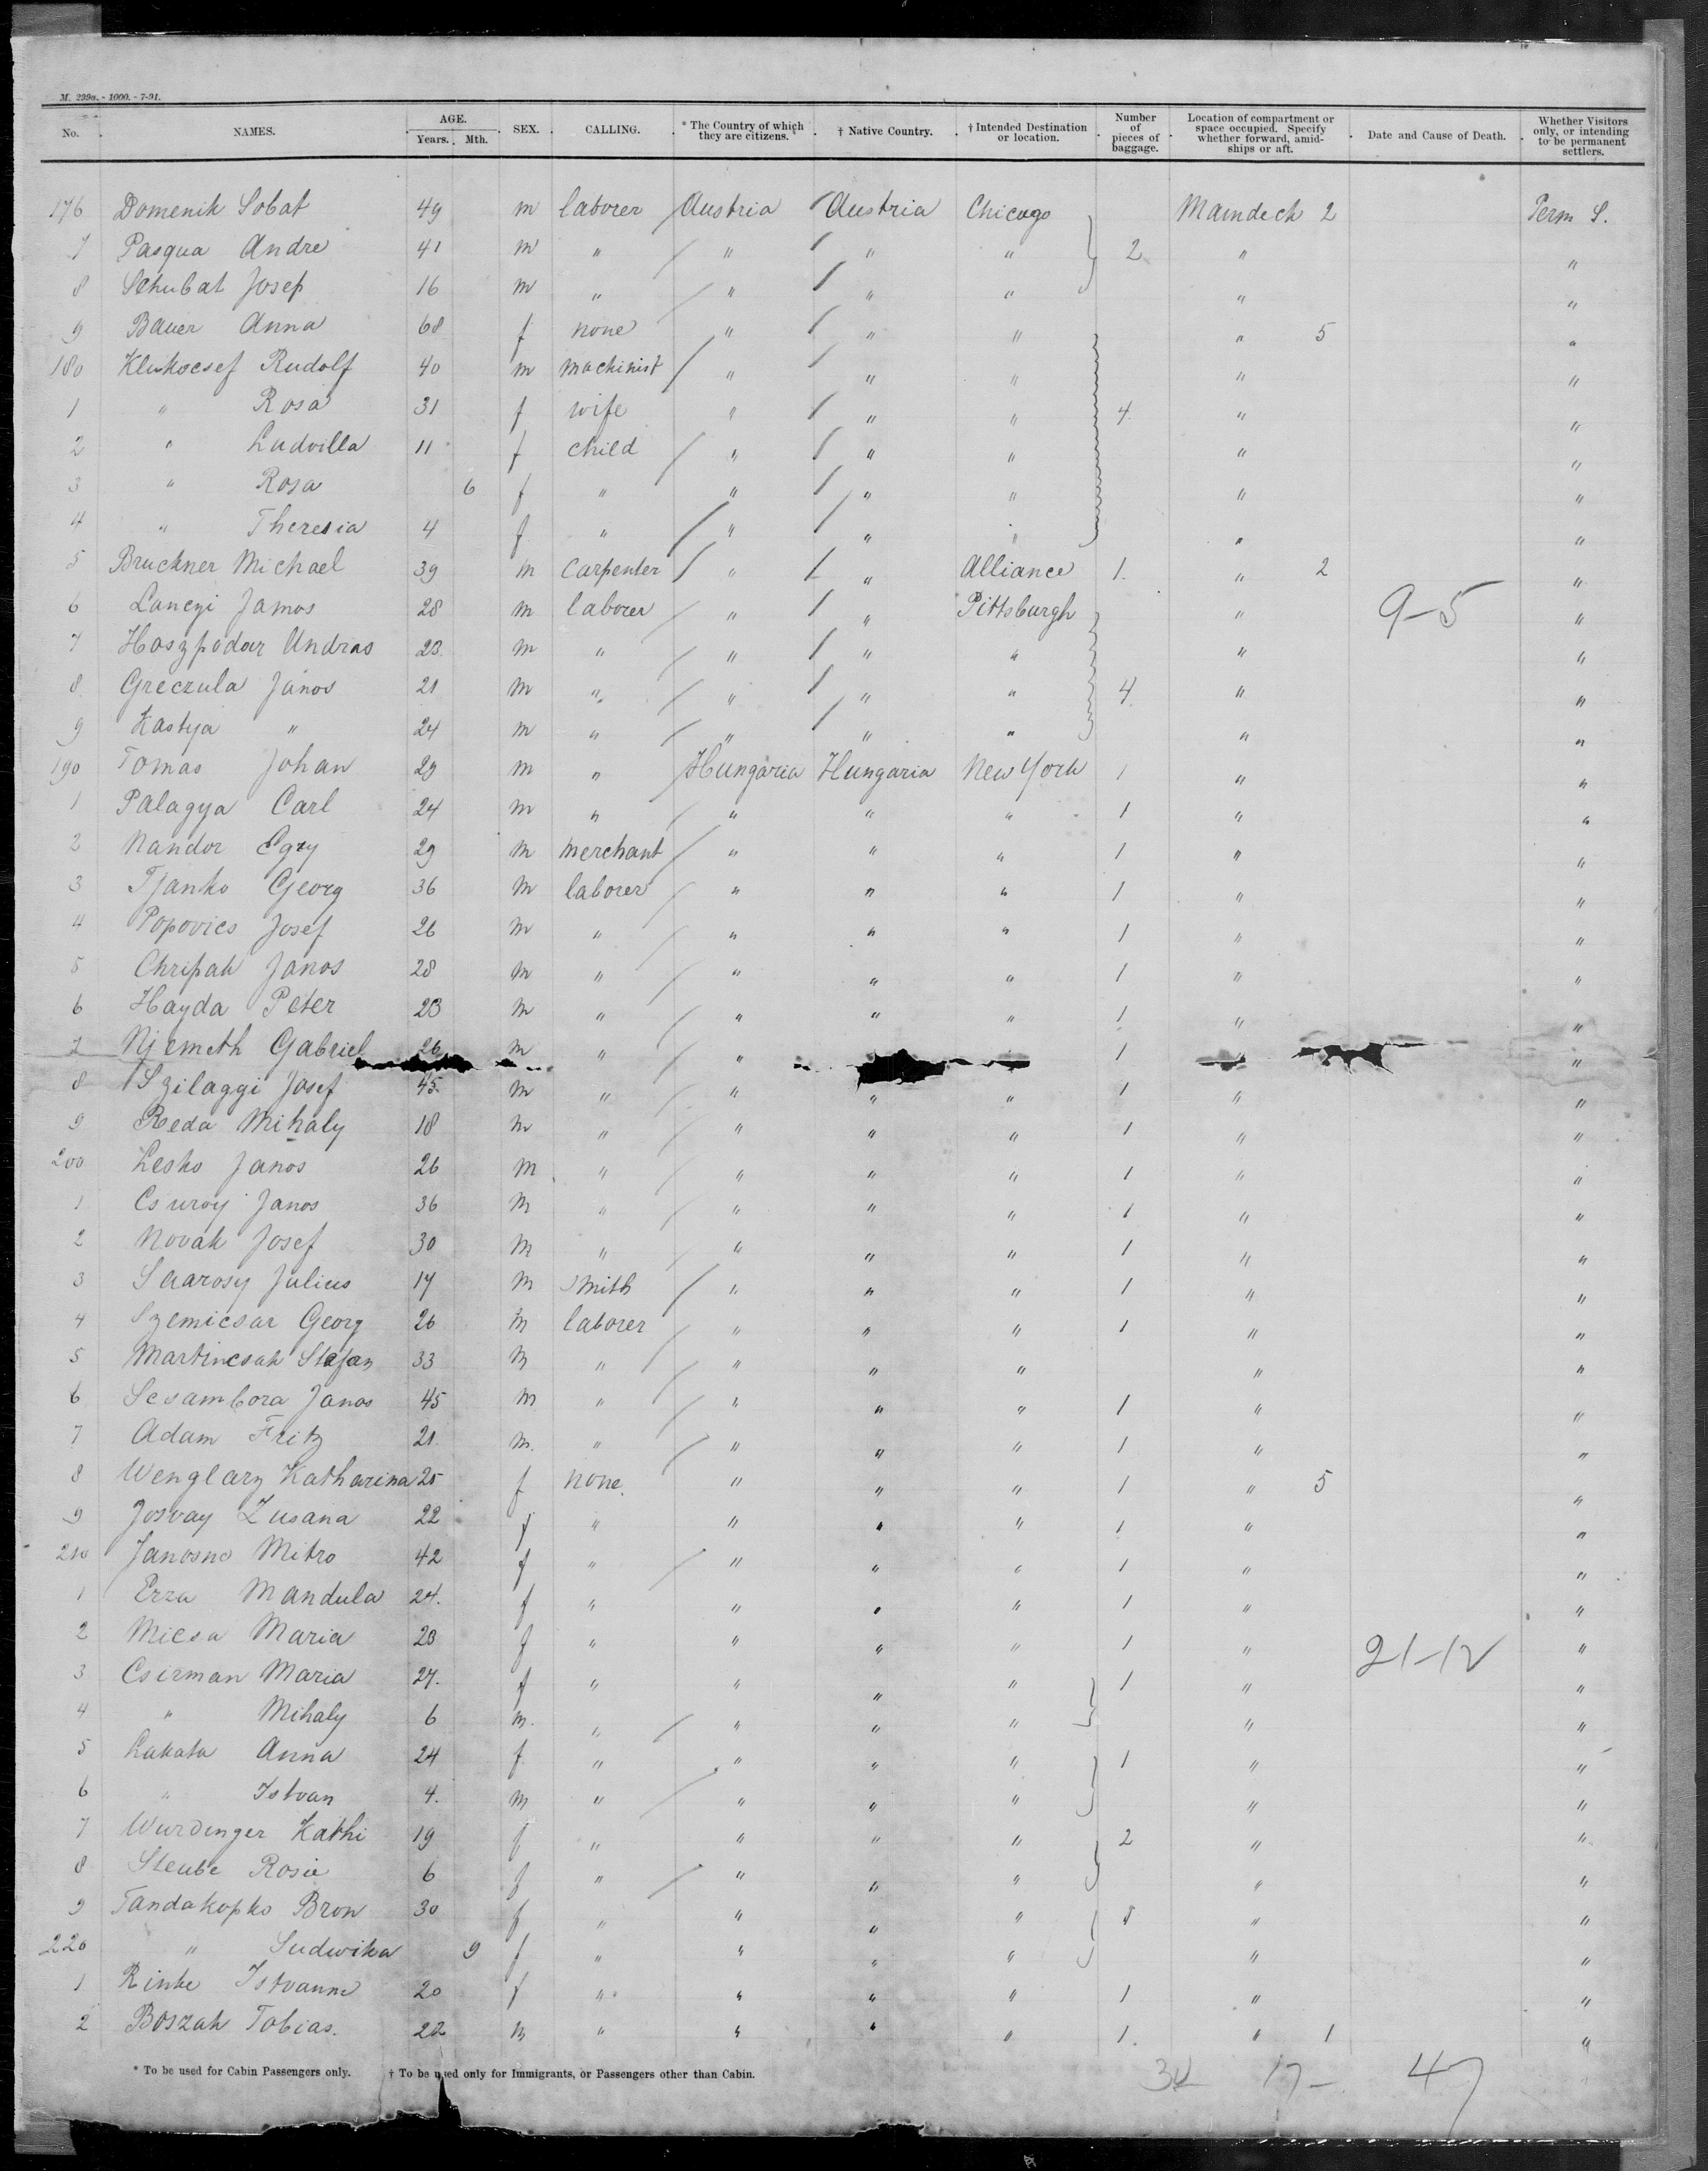 M. 299a. - 1000. - 7-91.
No. NAMES. AGE. Years. Mth. SEX. CALLING. * The Country of which they are citizens. † Native Country. † Intended Destination or location. Number of pieces of baggage. Location of compartment or space occupied. Specify whether forward, amidships or aft. Date and Cause of Death. Whether Visitors only, or intending to be permanent settlers.
176 Domenik Sobat 49 m laborer Austria Austria Chicago Maindeck 2 Perm S.
7 Pasqua Andre 41 m " " " " 2 " "
8 Schubat Josef 16 m " " " " " "
9 Bauer Anna 68 f none " " " " 5 "
180 Klukocsef Rudolf 40 m machinist " " " " "
1 " Rosa 31 f wife " " " 4 " "
2 " Ludvilla 11 f child " " " " "
3 " Rosa 6 f " " " " " "
4 " Theresia 4 f " " " " " "
5 Bruckner Michael 39 m carpenter " " Alliance 1 " 2 "
6 Lanczi Jamos 28 m laborer " " Pittsburgh " 9-5 "
7 Haszpodar Andras 23 m " " " " " "
8 Greczula Janos 21 m " " " " 4 " "
9 Kastya " 24 m " " " " " "
190 Tomas Johan 29 m " Hungaria Hungaria New York 1 " "
1 Palagya Carl 24 m " " " " 1 " "
2 Nandor Egry 29 m merchant " " " 1 " "
3 Tjanko Georg 36 m laborer " " " 1 " "
4 Popovics Josef 26 m " " " " 1 " "
5 Chripak Janos 28 m " " " " 1 " "
6 Hayda Peter 23 m " " " " 1 " "
7 Njemeth Gabriel 26 m " " 1 " "
8 Szilaggi Josef 45 m " " " " 1 " "
9 Reda Mihaly 18 m " " " " 1 " "
200 Lesko Janos 26 m " " " " 1 " "
1 Csuroy Janos 36 m " " " " 1 " "
2 Novak Josef 30 m " " " " 1 " "
3 Saarosy Julius 17 m smith " " " 1 " "
4 Szemicsar Georg 26 m laborer " " " 1 " "
5 Martincsak Stefan 33 m " " " " " "
6 Scsambora Janos 45 m " " " " 1 " "
7 Adam Fritz 21 m. " " " " 1 " "
8 Wenglarz Katharina 25 f none. " " " 1 " 5 "
9 Josvay Zusana 22 f " " " " 1 " "
210 Janosne Mitro 42 f " " " " 1 " "
1 Erza Mandula 24. f " " " " 1 " "
2 Micsa Maria 23 f " " " " 1 " 21-12 "
3 Csirman Maria 27. f " " " " 1 " "
4 " Mihaly 6 m. " " " " " "
5 Lakata Anna 24 f " " " " 1 " "
6 " Istvan 4. m " " " " " "
7 Wurdinger Kathi 19 f " " " " 2 " "
8 Steube Rosie 6 f " " " " " "
9 Tandakopko Bron 30 f " " " " " "
220 " Ludwika 9 f " " " " " "
1 Rinke Istvanne 20 f " " " " 1 " "
2 Boszak Tobias. 22 m " " " " 1. " 1 "
* To be used for Cabin Passengers only. † To be used only for Immigrants, or Passengers other than Cabin.
17- 47